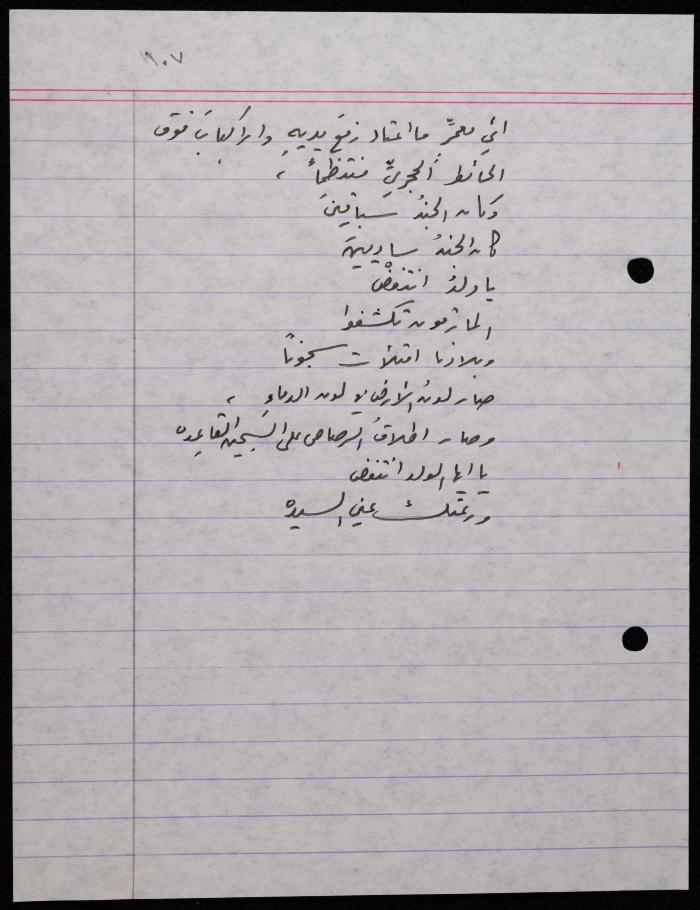 ١٩٠٧
اني معمّر ما اعتاد رفعَ يديهِ والركباتُ فوق
الحائط الحجريّ منتظماً ،
وكان الجندُ سباقينَ
كان الجندُ ساديينَ
يا ولدُ انتفضْ
المأزومون تكشفوا
وبلادنا امتلأت سجوناً
صار لونُ الأرض لون الدماءِ ،
وصار اطلاقُ الرصاص على السجين القاعده
يا ايها الولد انتفض
ورغمك عني السيده